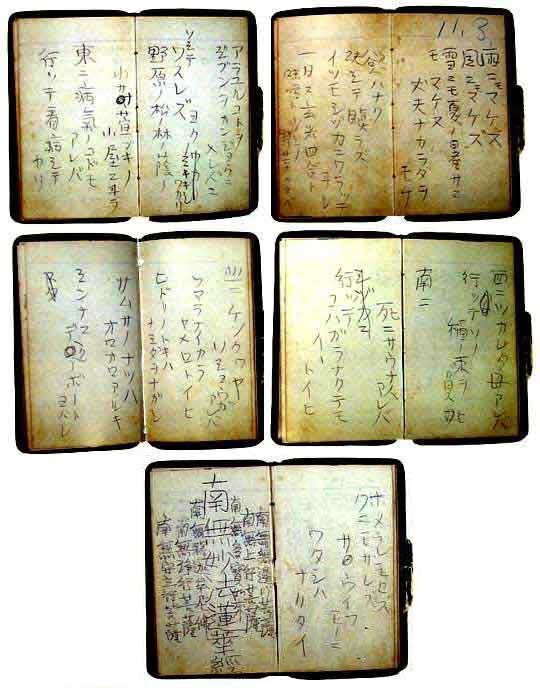 11.3.
雨ニモマケズ
風ニモマケズ
雪ニモ夏ノ暑サニモ
マケヌ
丈夫ナカラダヲ
モチ
慾ハナク
決シテ瞋ラズ
イツモシヅカニワラッテ
ヰル
一日ニ玄米四合ト
味噌ト少シノ
野菜ヲタベ
アラユルコトヲ
ジブンヲカンジョウニ
入レズニ
ヨクミキキシワカリ
ソシテ
ワスレズ
野原ノ松ノ林ノ蔭ノ
小サナ萱ブキノ
小屋ニヰテ
東ニ病氣ノコドモ
アレバ
行ッテ看病シテ
ヤリ
西ニツカレタ母アレバ
行ッテソノ
稲ノ束ヲ
負ヒ
南ニ
死ニサウナ人
アレバ
行ッテ
コハガラナクテモ
イヽトイヒ
北ニケンクヮヤ
ソショウガ
アレバ
ツマラナイカラ
ヤメロトイヒ
ヒドリノトキハ
ナミダヲナガシ
サムサノナツハ
オロオロアルキ
ミンナニ
デクノボート
ヨバレ
ホメラレモセズ
クニモサレズ
サウイフ
モノニ
ワタシハ
ナリタイ
南無無邊行菩薩
南無上行菩薩
南無多寶如来
南無妙法蓮華經
南無釈迦牟尼佛
南無浄行菩薩
南無安立行菩薩